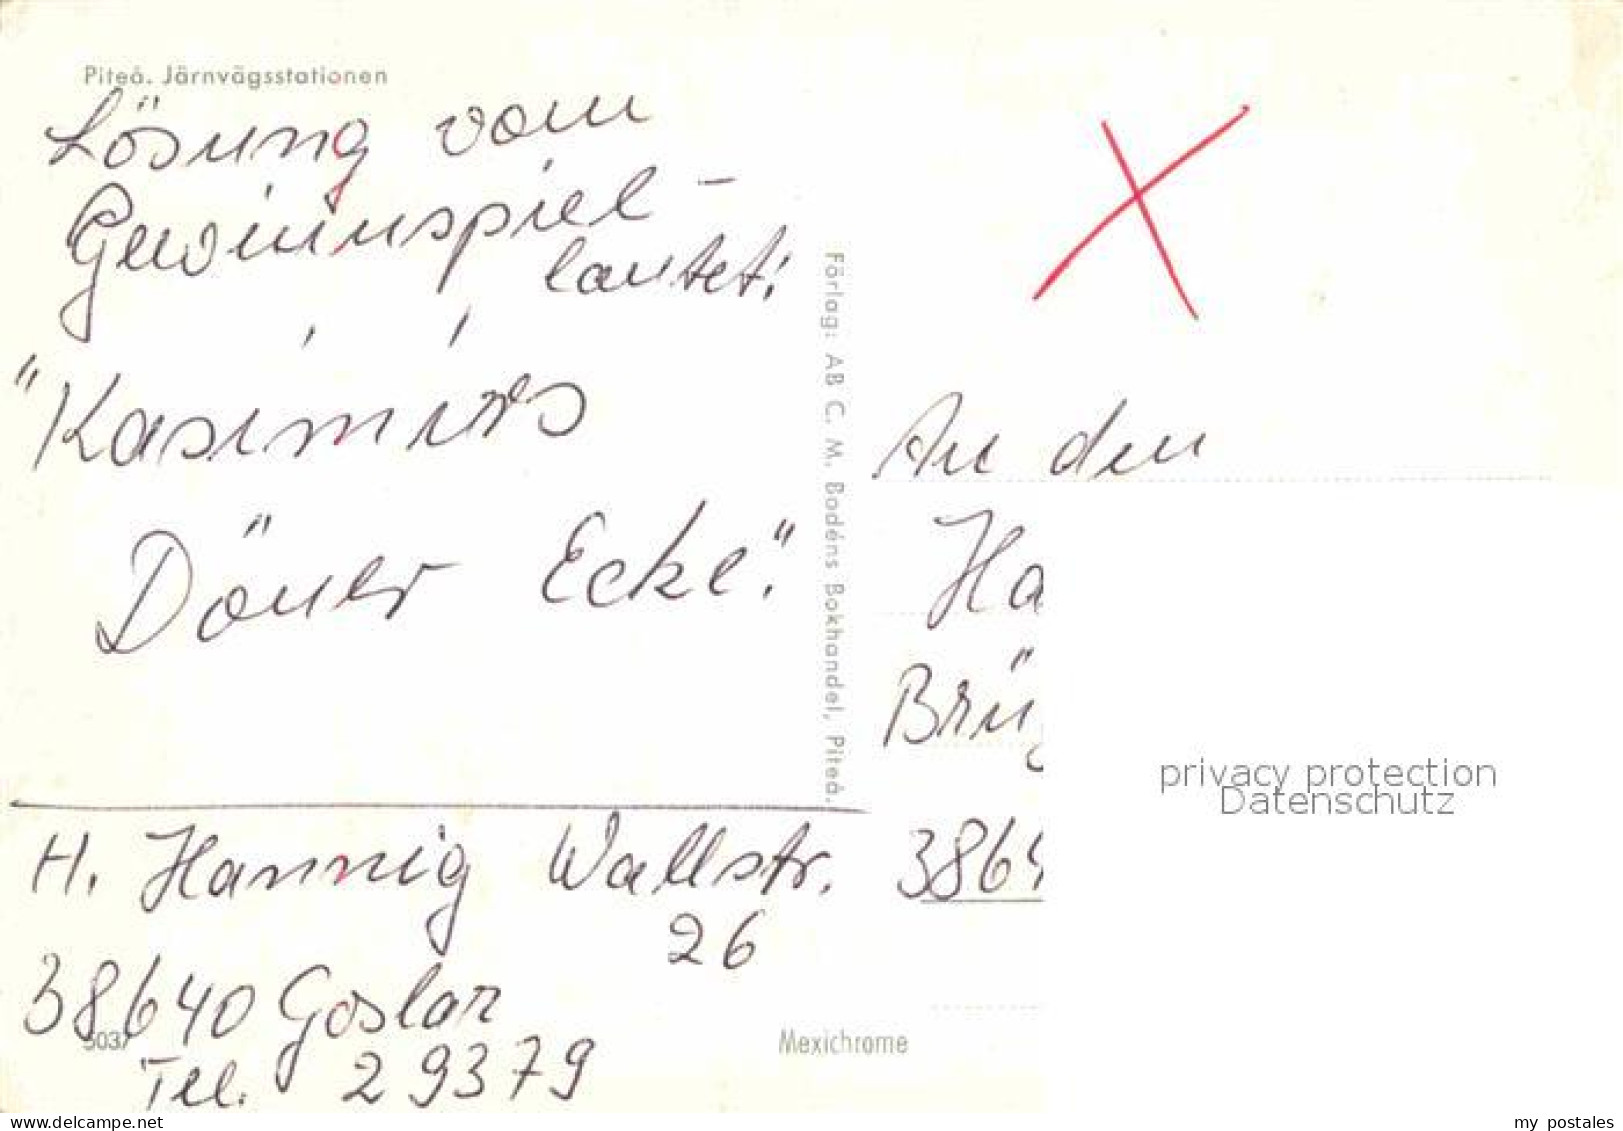 Piteå. Järnvägsstationen
Lösung vom
Gewinnspiel -
lautet:
"Kasimirs
Döner Ecke."
H. Hannig Wallstr.
26
38640 Goslar
Tel. 29379
5037
Förlag: AB C. M. Bodéns Bokhandel, Piteå.
Mexichrome
An den
Ha
Brüg
3864
privacy protection
Datenschutz
www.delcampe.net
my_postales